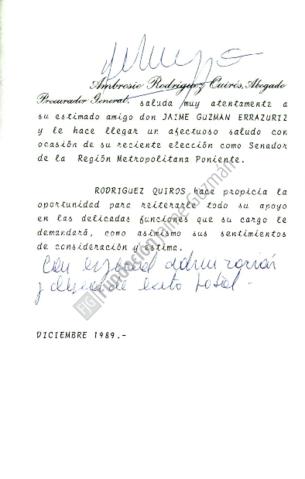 Ambrosio Rodriguez Quirós, Abogado
Procurador General, saluda muy atentamente a
su estimado amigo don JAIME GUZMAN ERRAZURIZ
y le hace llegar un afectuoso saludo con
ocasión de su reciente elección como Senador
de la Región Metropolitana Poniente.
RODRIGUEZ QUIROS hace propicia la
oportunidad para reiterarle todo su apoyo
en las delicadas funciones que su cargo le
demandará, como asimismo sus sentimientos
de consideración y estima.
Con especial admiración
y deseo de éxito total.-
DICIEMBRE 1989.-
Fundación Jaime Guzmán